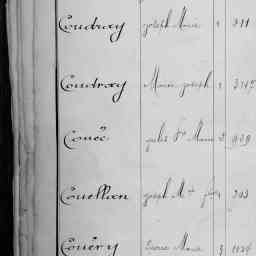 Coudray Joseph Marie 1 311
Coudray Marie Joseph 1
Couëc Jules Marie 2 939
Couellan Joseph M 303
Couëry Pierre Marie 3